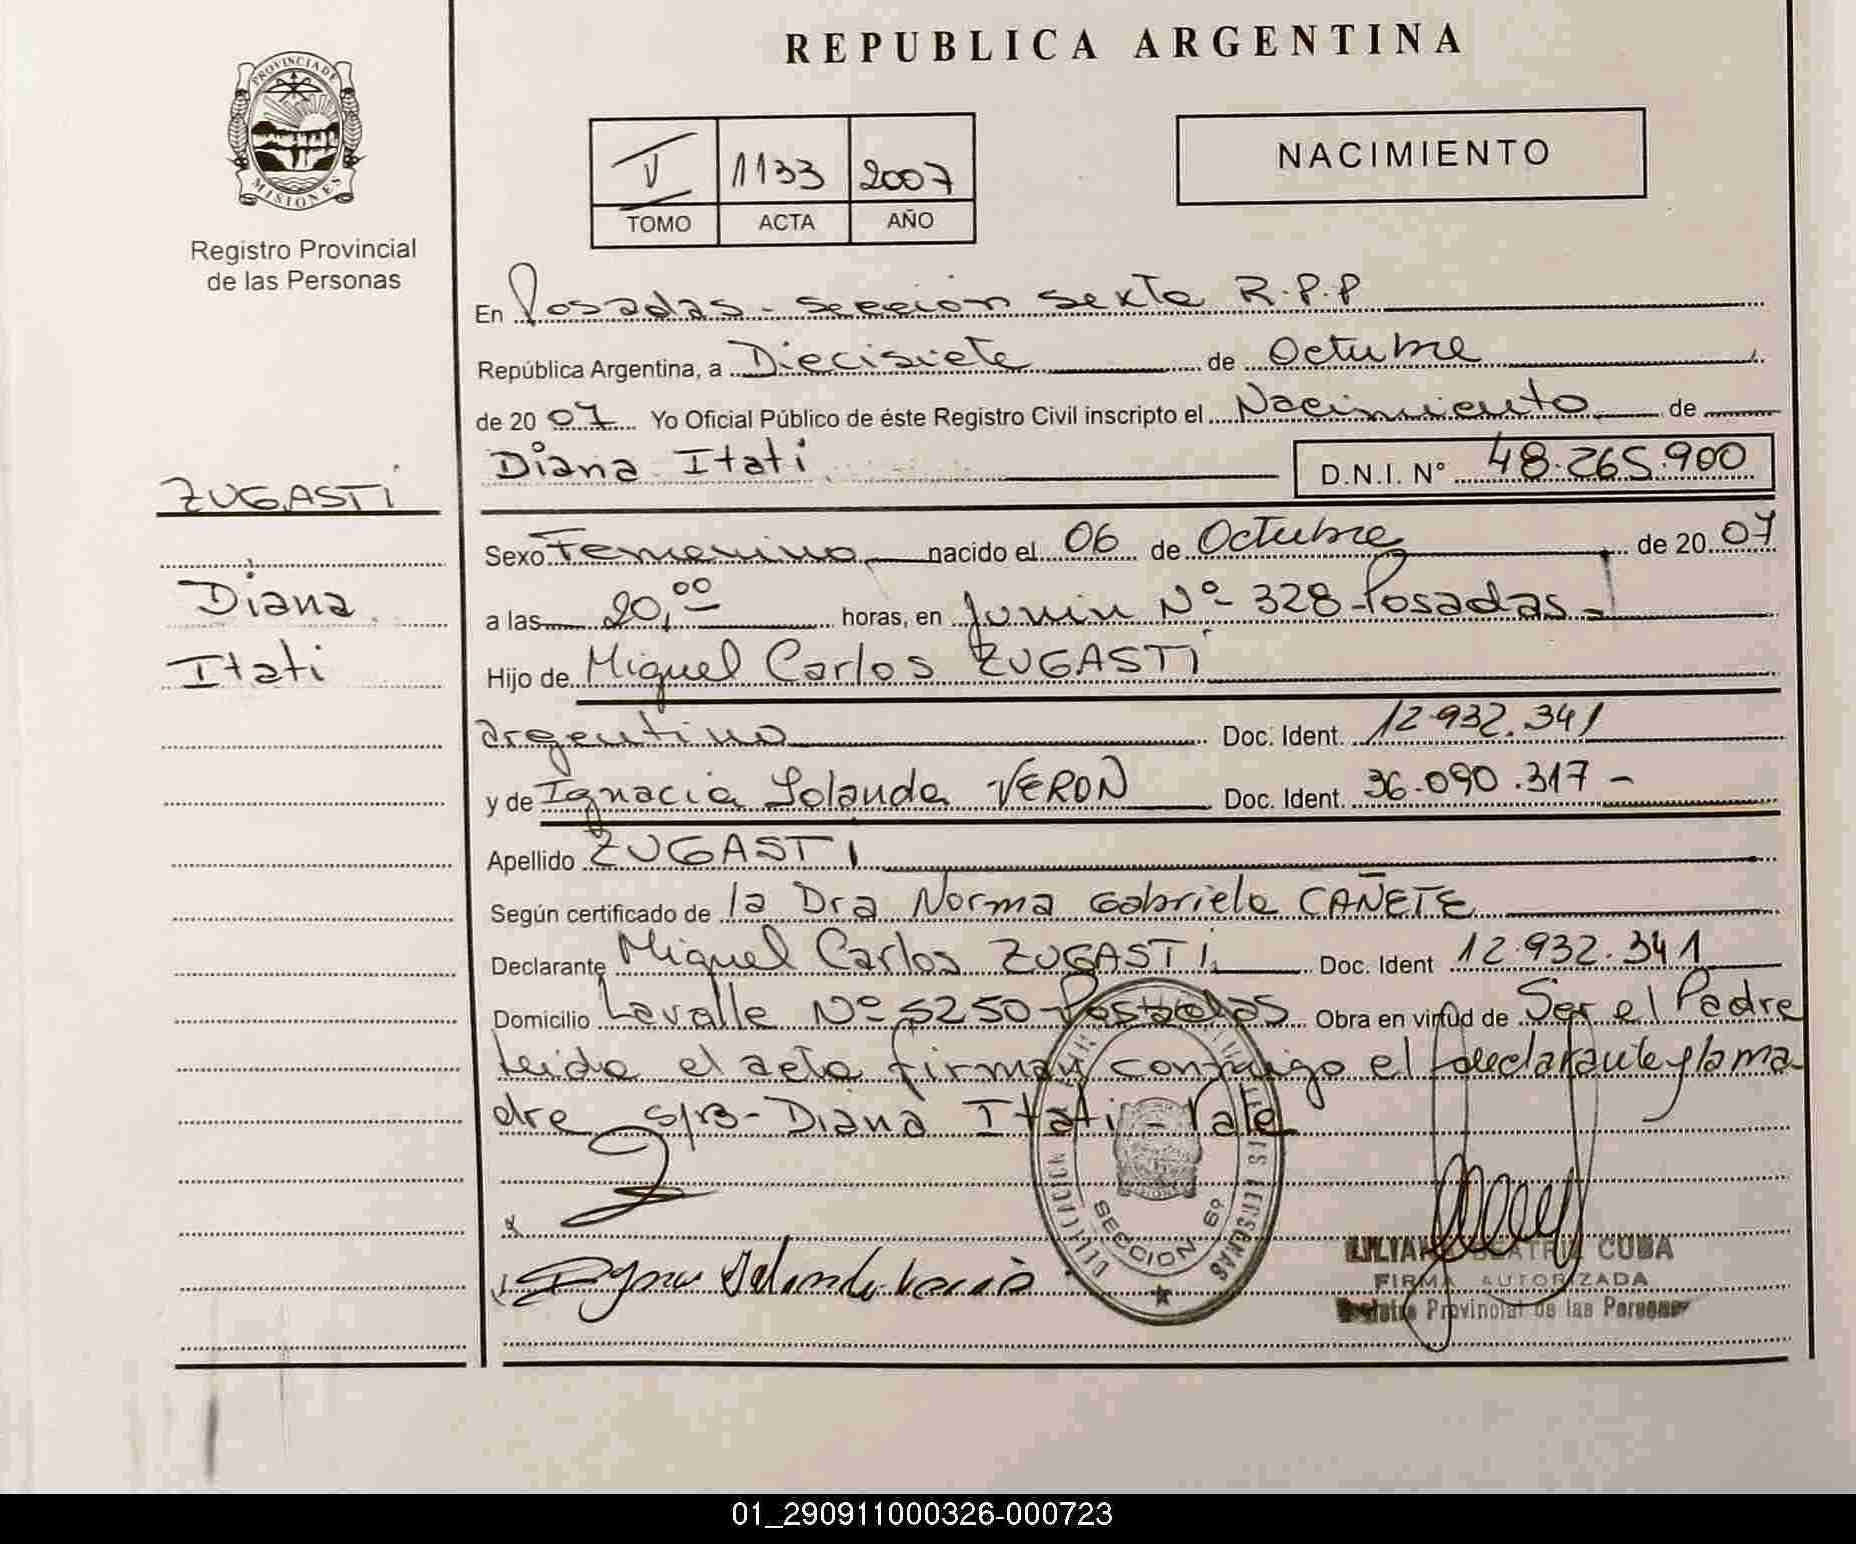 REPUBLICA ARGENTINA
PROVINCIA DE
MISIONES
Registro Provincial
de las Personas
V 1133 2007
TOMO ACTA AÑO
NACIMIENTO
En Posadas - seccion sexta R.P.P
República Argentina, a Diecisiete de Octubre
de 20 07 Yo Oficial Público de éste Registro Civil inscripto el Nacimiento de
Diana Itati D.N.I. N° 48.265.900
ZUGASTI
Diana
Itati
Sexo Femenino nacido el 06 de Octubre de 20 07
a las 20,00 horas, en Junin Nº 328 - Posadas -
Hijo de Miguel Carlos ZUGASTI
argentino Doc. Ident. 12.932.341
y de Ignacia Yolanda VERON Doc. Ident. 36.090.317 -
Apellido ZUGASTI
Según certificado de la Dra Norma Gabriela CAÑETE
Declarante Miguel Carlos ZUGASTI Doc. Ident 12.932.341
Domicilio Lavalle Nº 5250 - Posadas Obra en virtud de Ser el Padre
Leida el acta firman conmigo el declarante y la ma
dre S/B - Diana Itati - Vale
SECCION 6º
CUBA
FIRMA AUTORIZADA
Provincial de las Personas
01_290911000326-000723